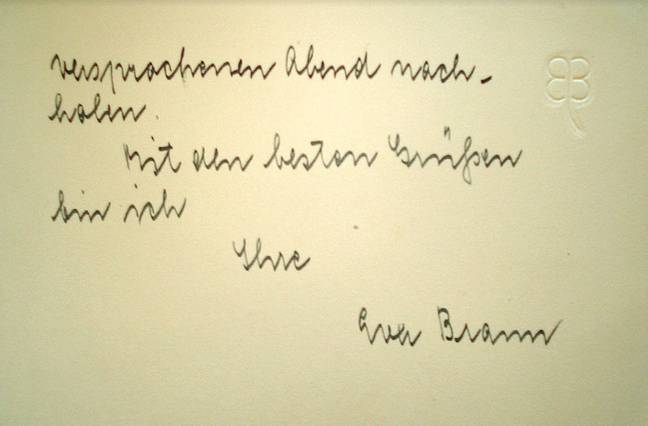 versprochenen Abend nach-
holen.
Mit den besten Grüßen
bin ich
Ihre
Eva Braun